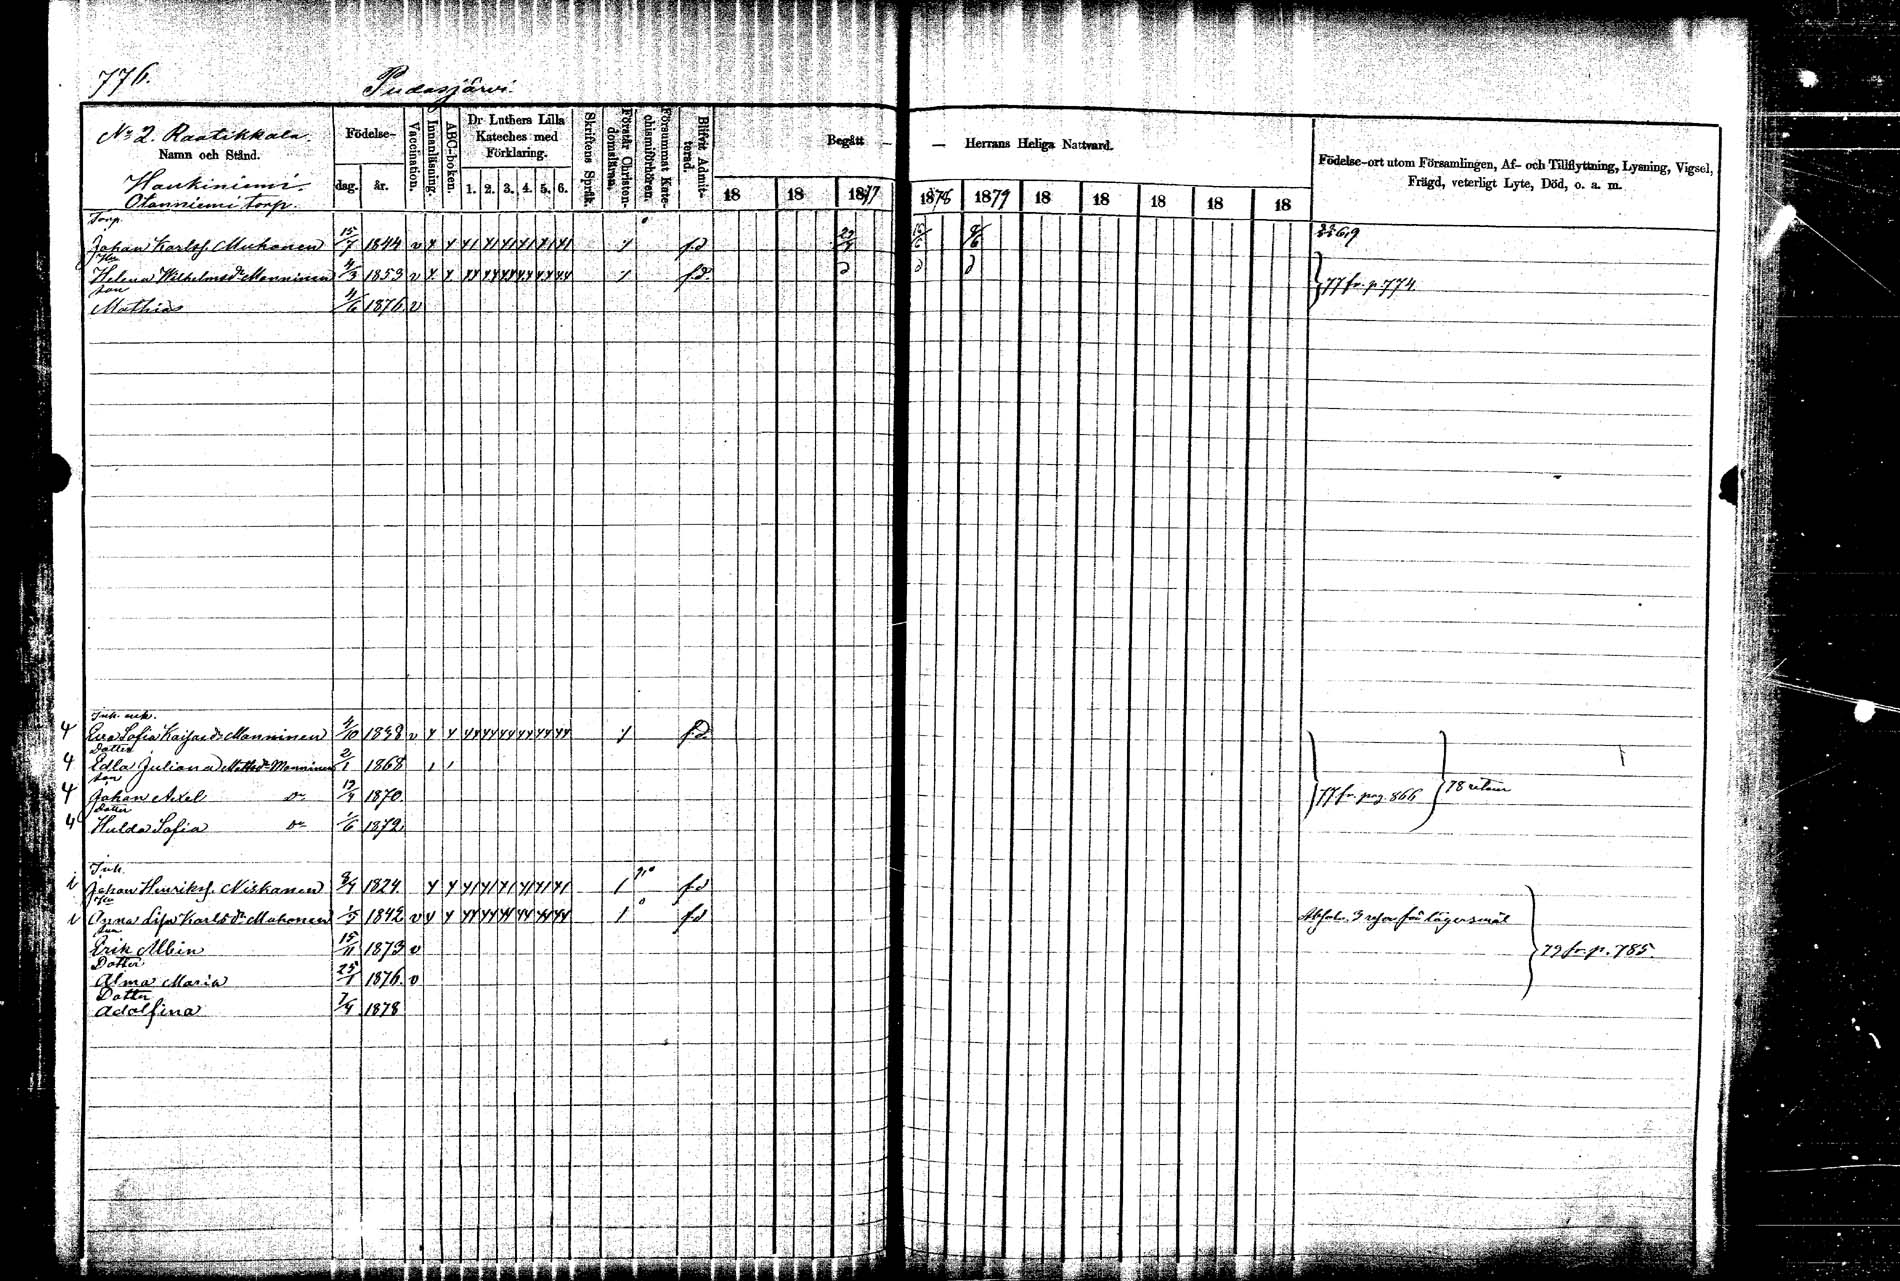 776.
Pudasjärvi.
No 2. Raatikkala.
Namn och Stånd.
Haukiniemi.
Otanniemi torp.
Födelse-
dag. år.
Vaccination.
Innanläsning.
ABC-boken.
Dr Luthers Lilla Kateches med Förklaring.
1. 2. 3. 4. 5. 6.
Skriftens Språk.
Förstår Christen-domsläran.
Försummat Kate-chismiförhören.
Blifvit Admit-terad.
Begått — — Herrans Heliga Nattvard.
18 18 1877 1878 1879 18 18 18 18 18
Födelse-ort utom Församlingen, Af- och Tillflyttning, Lysning, Vigsel,
Frägd, veterligt Lyte, Död, o. a. m.
Torp.
Johan Karlss. Muhonen 15/7 1844 v f.d
Helena Wilhelmsdr Manninen 4/3 1853 v f.d. 77 fr. p. 774.
son
Mathias 4/6 1876. v
Inh. enk.
Eva Sofia Kaisasdr Manninen 4/10 1838 v f.d.
Dotter
Edla Juliana Mattsdr Manninen 2/1 1868
son
Johan Axel dr 1870. 77 fr. pag. 866 78 retour
Dotter
Hulda Sofia dr 1/6 1872.
Inh.
Johan Henrikss. Niskanen 1824 f.d
Anna Lisa Karlsdr Muhonen 1842 v f.d
son
Erik Albin 15/11 1873 v 79 fr. p. 785.
Dotter
Alma Maria 25/1 1876. v
Dotter
Adolfina 7/4 1878